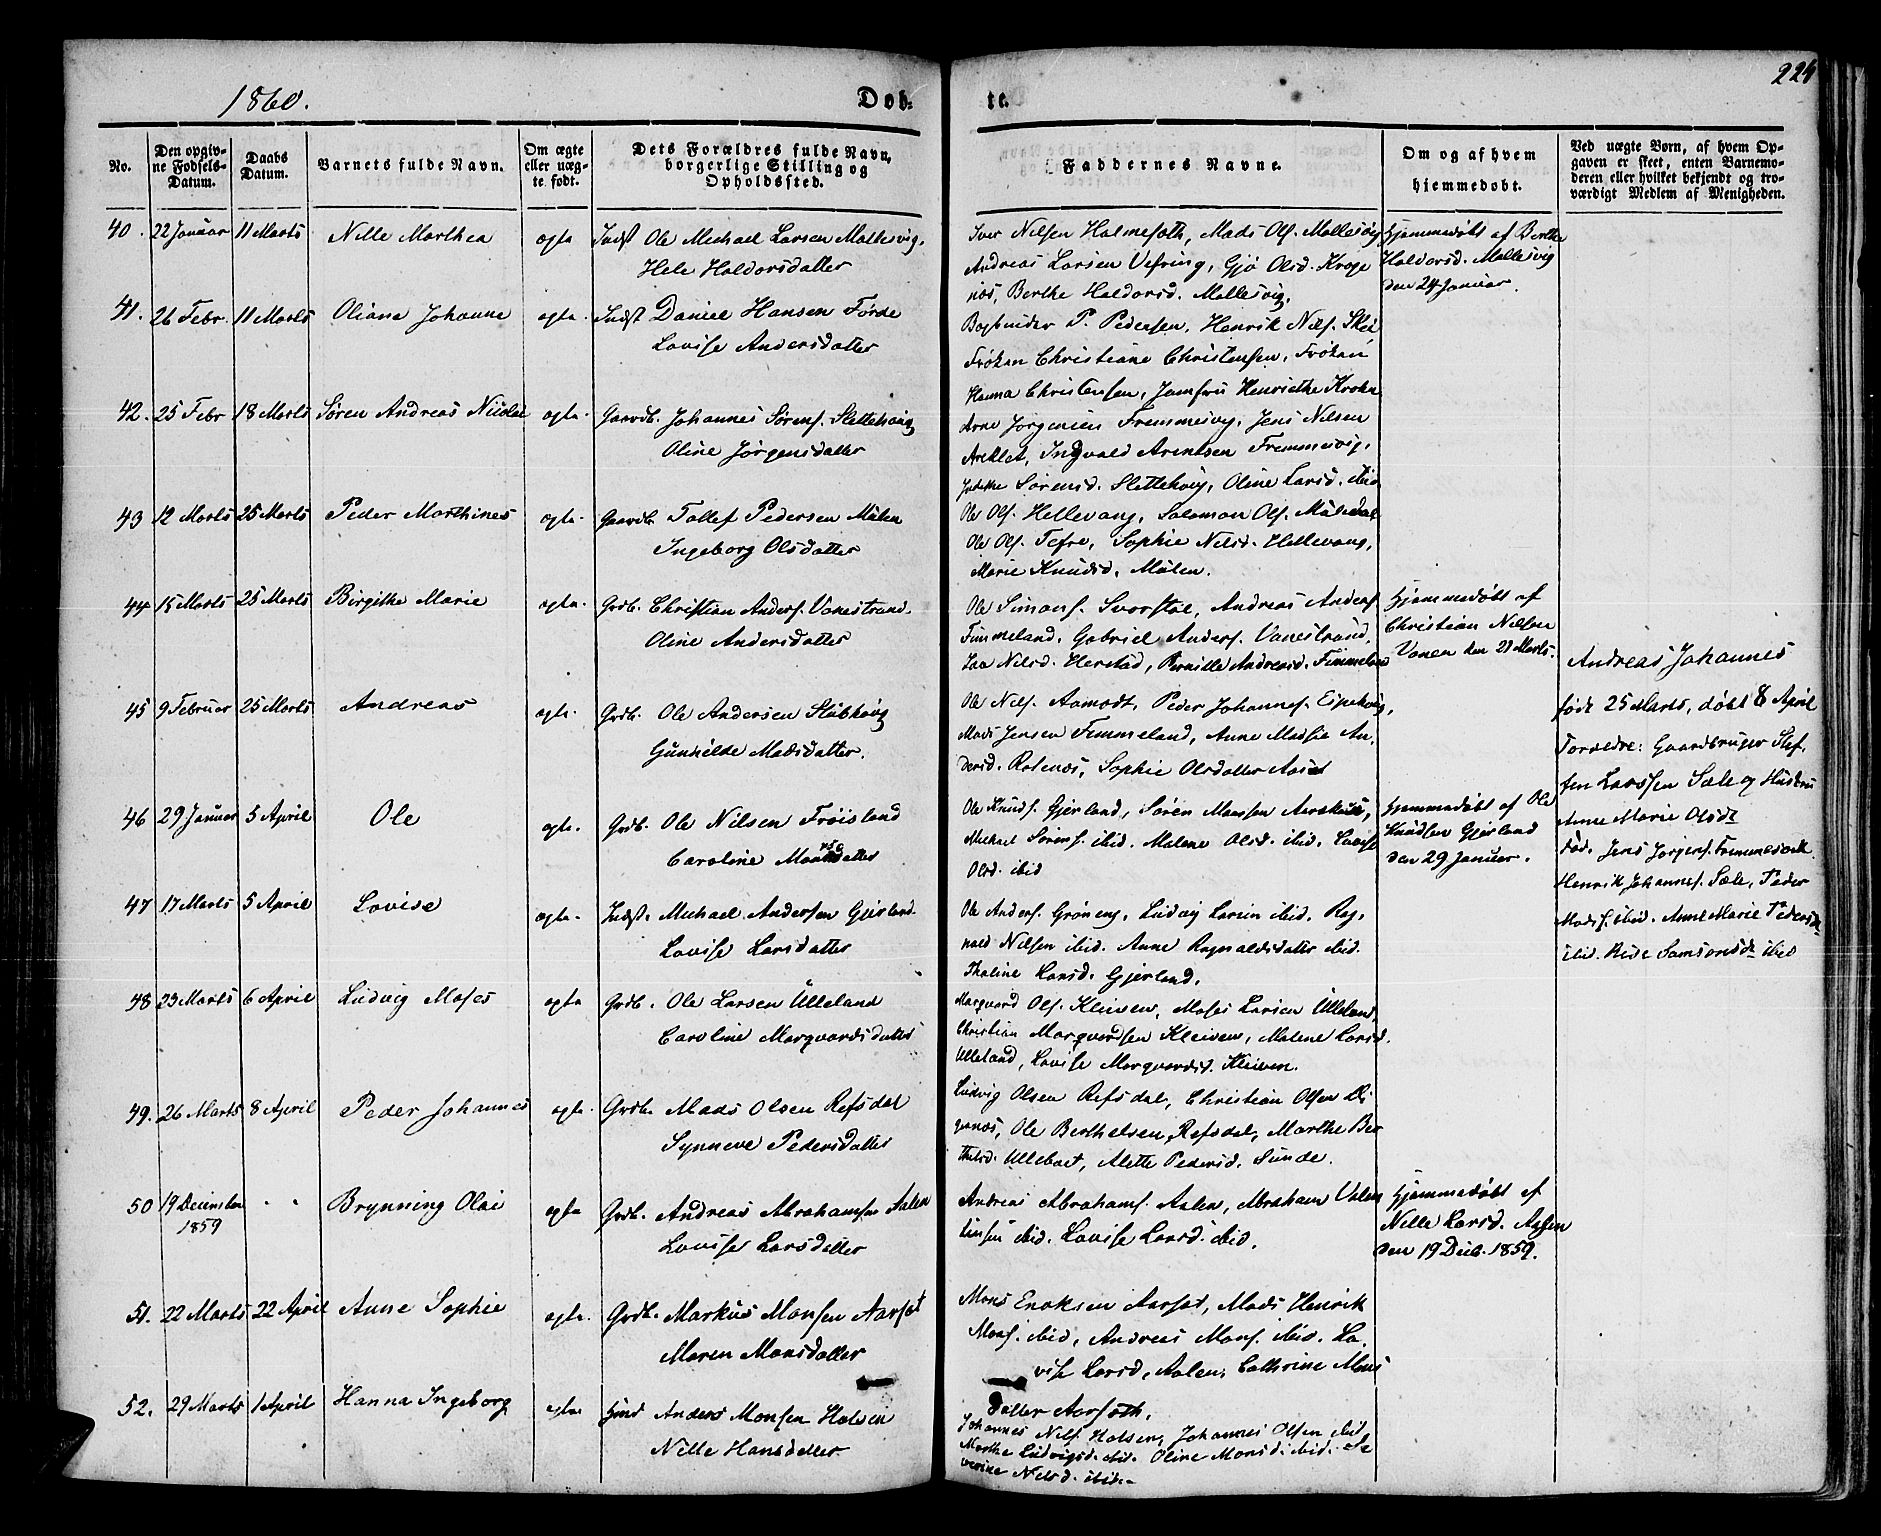 1860.
Døb-
te.
224
No.
Den opgiv-
ne Fødsels-
Datum.
Daabs
Datum.
Barnets fulde Navn.
Om ægte
eller uæg-
te født.
Dets Forældres fulde Navn,
borgerlige Stilling og
Opholdssted.
Faddernes Navne.
Om og af hvem
hjemmedøbt.
Ved uægte Børn, af hvem Op-
gaven er skeet, enten Barnemo-
deren eller hvilket bekjendt og tro-
værdigt Medlem af Menigheden.
40. 22 Januar 11 Marts Nille Marthea ægte Indst Ole Michael Larsen Mallesvig,
Hele Haldorsdatter
Iver Nilsen Halmefoth, Mads Ols. Mallesvig
Andreas Larsen Vefring, Gjø Olsd. Krage
næs, Berthe Haldorsd. Mallesvig.
Hjemmedøbt af Berthe
Haldorsd. Mallesvig
den 24 Januar.
41. 26 Febr. 11 Marts Oliane Johanne ægte. Indst Daniel Hansen Førde
Lovise Andersdatter
Bogbinder P. Pedersen, Henrik Nils. Skei
Frøken Christiane Christensen, Frøken
Hanna Christensen, Jomfru Henriethe Krohn
42. 25 Febr 18 Marts Søren Andreas Nicolai ægte. Gaardb. Johannes Sørens. Slettehoug
Oline Jørgensdatter
Arne Jørgensen Fremmesvig, Jens Nilsen
Areklet, Ingvald Arentsen Fremmesvig,
Sørensd. Slettehoug, Oline Larsd. ibid
43 12 Marts 25 Marts Peder Marthines ægte. Gaardb. Tollef Pedersen Målen
Ingeborg Olsdatter
Ole Ols. Hellevang, Salomon Ols. Målen
Ole Ols. Tefre, Sophie Nilsd. Hellevang,
Marie Knudsd. Målen.
44 15 Marts 25 Marts Birgithe Marie ægte. Grdb. Christian Anders. Vonestrand.
Oline Andersdatter
Ole Simons. Svorstøl, Andreas Anders.
Fimmeland, Gabriel Anders. Vonestrand,
Nilsd. Herstad, Pernille Andreasd. Fimmeland
Hjemmedøbt af
Christian Nilsen
Vonen den 21 Marts.
45 9 Februar 25 Marts Andreas ægte. Grdb. Ole Andersen Slubhoug
Gunhilde Madsdatter.
Ole Nils. Aamodt, Peder Johannes. Espehoug,
Mads Jensen Fimmeland, Anne Mathia An-
dersd. Rotenæs, Sophie Olsdatter Aaset
46 29 Januar 5 April Ole ægte. Grdb. Ole Nilsen Frøisland
Caroline Monsdatter
Ole Knuds. Gjerland, Søren Monsen Aarskaug,
Michael Sørens. ibid. Malene Olsd. ibid. Lovise
Olsd. ibid
Hjemmedøbt af Ole
Knudsen Gjerland
den 29 Januar.
47 17 Marts 5 April Lovise ægte. Indst. Michael Andersen Gjerland
Lovise Larsdatter
Ole Anders. Grøneng, Ludvig Larsen ibid. Rag-
nald Nilsen ibid. Anne Ragnaldsdatter ibid.
Thaline Larsd. Gjerland.
48 23 Marts 6 April Ludvig Moses ægte Grdb. Ole Larsen Ulleland
Caroline Marqvardsdatter
Marqvard Ols. Kleiven, Moses Larsen Ulleland,
Christian Marqvardsen Kleiven, Malene Larsd.
Ulleland, Lovise Marqvardsd. Kleiven.
49. 26 Marts 8 April Peder Johannes ægte. Grdb. Mads Olsen Refsdal
Synneve Pedersdatter
Ludvig Olsen Refsdal, Christian Olsen Di-
granæs, Ole Berthelsen Refsdal, Marthe Ber-
thelsd. Ullebøet, Alette Pedersd. Sunde.
50 19 December - - Brynning Olai ægte Grdb. Andreas Abrahamsen Aalen
1859
Lovise Larsdatter
Andreas Abrahams. Aalen, Abraham Valen
tinsen ibid. Lovise Larsd. ibid.
Hjemmedøbt af
Nille Larsd. Aasen
den 19 Decb. 1859.
51. 22 Marts 22 April Anne Sophie ægte. Grdb. Markus Monsen Aarset
Maren Monsdatter
Mons Enoksen Aarset, Mads Henrik
Mons. ibid, Andreas Mons. ibid. Lo-
vise Larsd. Aalen, Cathrine Mons
datter Aarseth.
52. 29 Marts 1 April Hanna Ingeborg ægte Huud Anders Monsen Halsen
Nille Hansdatter
Johannes Nils. Halsen, Johannes Olsen ibid
Marthe Ludvigsd. ibid. Oline Monsd. ibid. Se-
verine Nilsd. ibid.-
Andreas Johannes
født 25 Marts, døbt 8 April
Forældre: Gaardbruger Stef-
fen Larssen Sæle og Hustru
Anne Marie Olsdt
Fad. Jens Jørgens. Fremmesvik
Henrik Johannes. Sæle, Peder
Mads. ibid. Anne Marie Pedersdt
ibid. Samsonsdt ibid